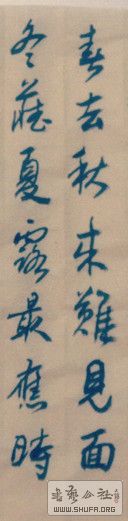 春去秋来難見面
冬藏夏露最應時
書法公社
WWW.SHUFA.ORG